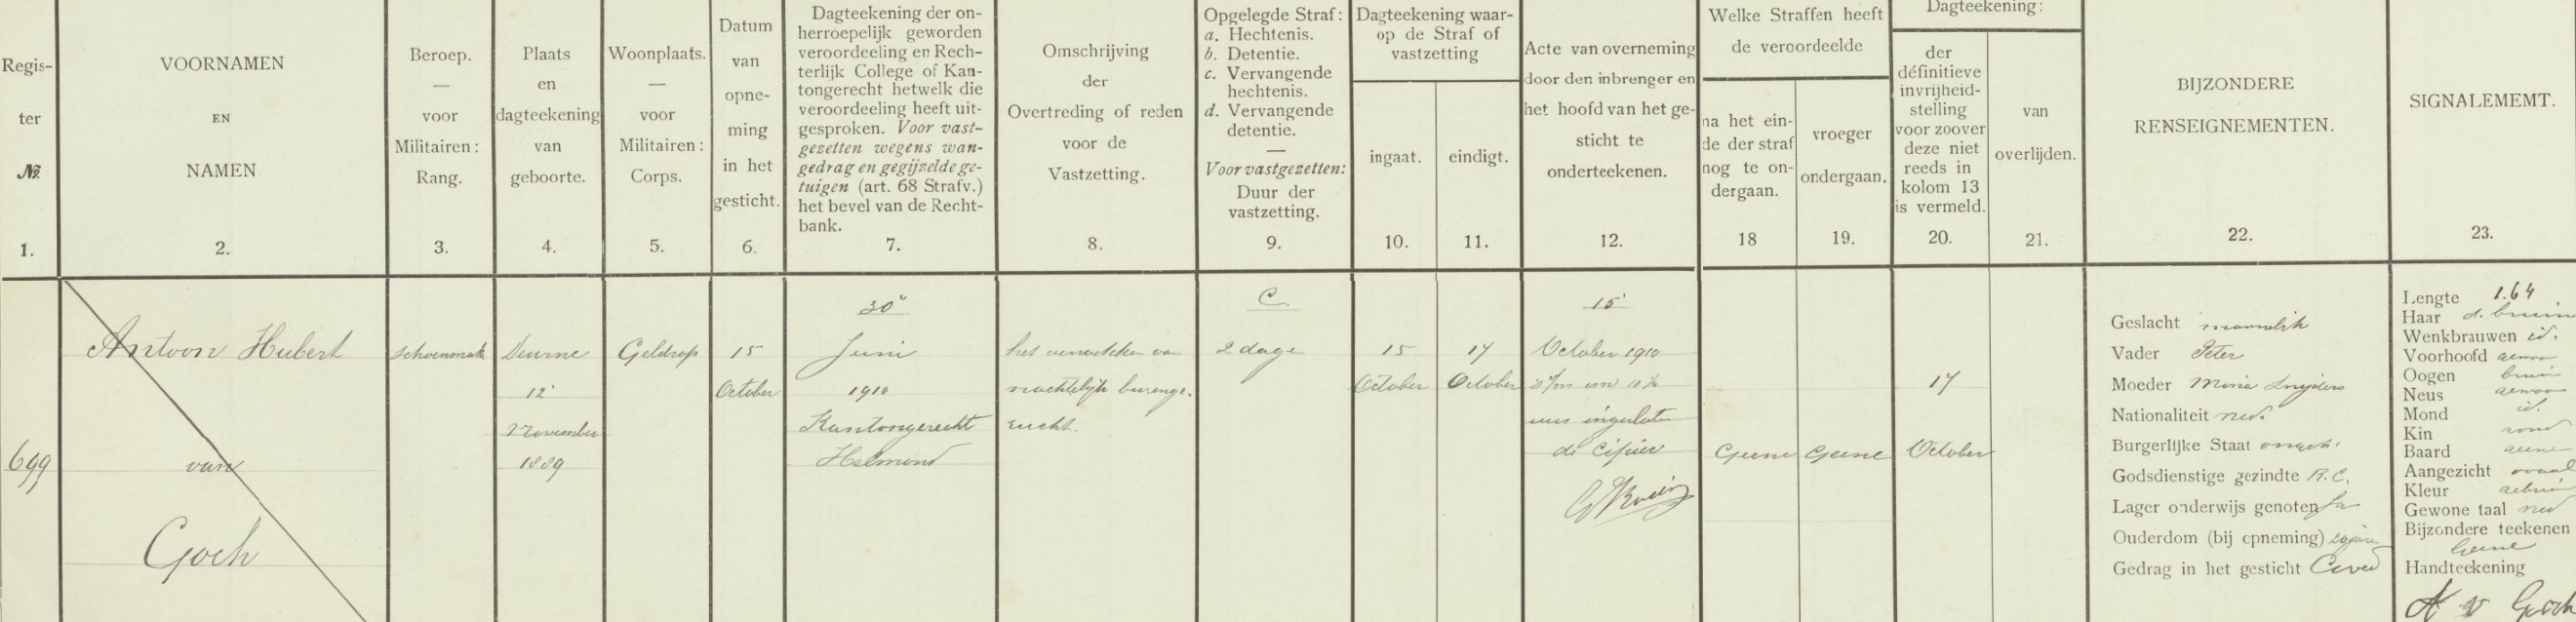 Regis-
ter
№.
1.
VOORNAMEN
EN
NAMEN
2.
Beroep.
—
voor
Militairen:
Rang.
3.
Plaats
en
dagteekening
van
geboorte.
4.
Woonplaats.
—
voor
Militairen:
Corps.
5.
Datum
van
opne-
ming
in het
gesticht.
6.
Dagteekening der on-
herroepelijk geworden
veroordeeling en Rech-
terlijk College of Kan-
tongerecht hetwelk die
veroordeeling heeft uit-
gesproken. Voor vast-
gezetten wegens wan-
gedrag en gegijzelde ge-
tuigen (art. 68 Strafv.)
het bevel van de Recht-
bank.
7.
Omschrijving
der
Overtreding of reden
voor de
Vastzetting.
8.
Opgelegde Straf:
a. Hechtenis.
b. Detentie.
c. Vervangende
hechtenis.
d. Vervangende
detentie.
—
Voor vastgezetten:
Duur der
vastzetting.
9.
Dagteekening waar-
op de Straf of
vastzetting
ingaat.
10.
eindigt.
11.
Acte van overneming
door den inbrenger en
het hoofd van het ge-
sticht te
onderteekenen.
12.
Welke Straffen heeft
de veroordeelde
na het ein-
de der straf
nog te on-
dergaan.
18
vroeger
ondergaan.
19.
Dagteekening:
der
définitieve
invrijheid-
stelling
voor zoover
deze niet
reeds in
kolom 13
is vermeld.
20.
van
overlijden.
21.
BIJZONDERE
RENSEIGNEMENTEN.
22.
SIGNALEMEMT.
23.
699
Antoon Hubert
van
Goch
schoenmak
Deurne
12
November
1889
Geldrop
15
October
30
Juni
1910
Kantongerecht
Helmond
het verwekken van
nachtelijk burenge-
rucht.
C.
2 dage
15
October
17
October
15
October 1910
de Cipier
Geene
Geene
17
October
Geslacht mannelijk
Vader Peter
Moeder Mina Snijders
Nationaliteit ned.
Burgerlijke Staat ongeh.
Godsdienstige gezindte R.C.
Lager onderwijs genoten Ja
Ouderdom (bij opneming)
Gedrag in het gesticht Goed
Lengte 1.64
Haar d. bruin
Wenkbrauwen id.
Voorhoofd gewoon
Oogen bruin
Neus gewoon
Mond id.
Kin rond
Baard geene
Aangezicht ovaal
Kleur gebruin
Gewone taal ned
Bijzondere teekenen
Geene
Handteekening
A v Goch